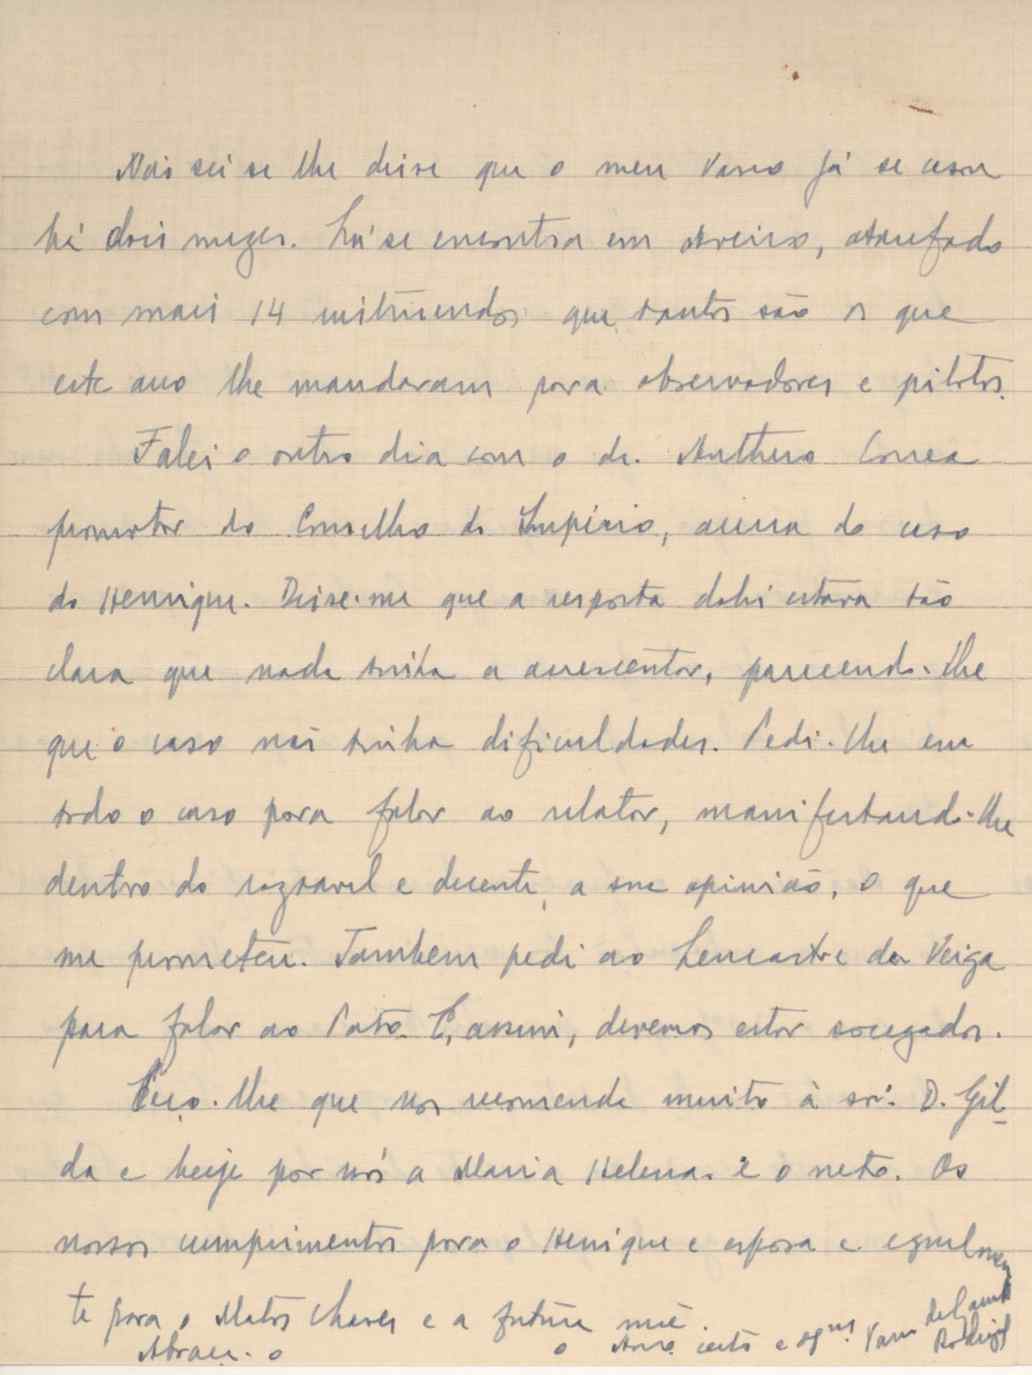 Não sei se lhe disse que o meu Vasco já se casou
há dois mezes. Lá se encontra em Aveiro, atarefado
com mais 14 instruendos que tantos são os que
este ano lhe mandaram para observadores e pilotos.
Falei o outro dia com o dr. Anthero Correa
promotor do Conselho do Império, acerca do caso
do Henrique. Disse-me que a resposta dahi estava tão
clara que nada tinha a acrescentar, parecendo-lhe
que o caso não tinha dificuldades. Pedi-lhe em
todo o caso para falar ao relator, manifestando-lhe
dentro do razoavel e decente, a sua opinião, o que
me prometeu. Tambem pedi ao Lencastre da Veiga
para falar ao Pato. E, assim, devemos estar socegados.
Peço-lhe que nos recomende muito à srª. D. Gil-
da e beije por nós a Maria Helena e o neto. Os
nossos cumprimentos para o Henrique e esposa e egualmen
te para o Matos Chaves e a futura mãe.
Abraça-o o Amº certo e obgmº Vasco de Gama Rodrigues